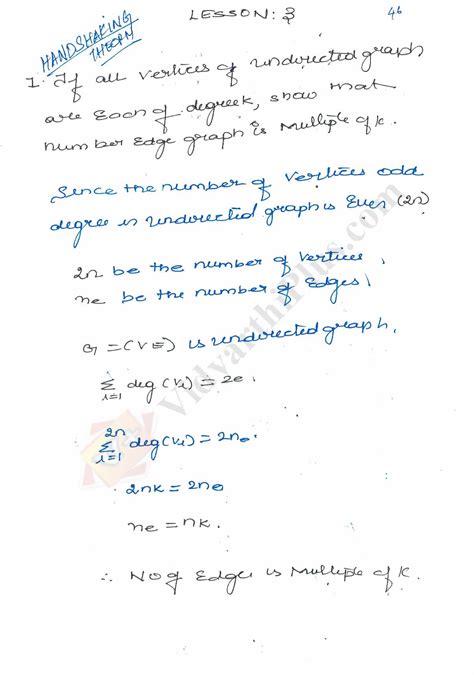 LESSON: 3
46
HANDSHAKING
THEORM
1. If all vertices of undirected graph
are each of degree k, show that
number Edge graph is Multiple of k.
Since the number of vertices odd
degree in undirected graph is Even (2n)
2n be the number of vertices,
ne be the number of edges,
G = (V E) is undirected graph,
∑ i=1 deg (Vi) = 2e,
2n ∑ i=1 deg (Vi) = 2ne.
2nk = 2ne
ne = nk.
∴ No of Edge is Multiple of K.
VidyarthiPlus.com